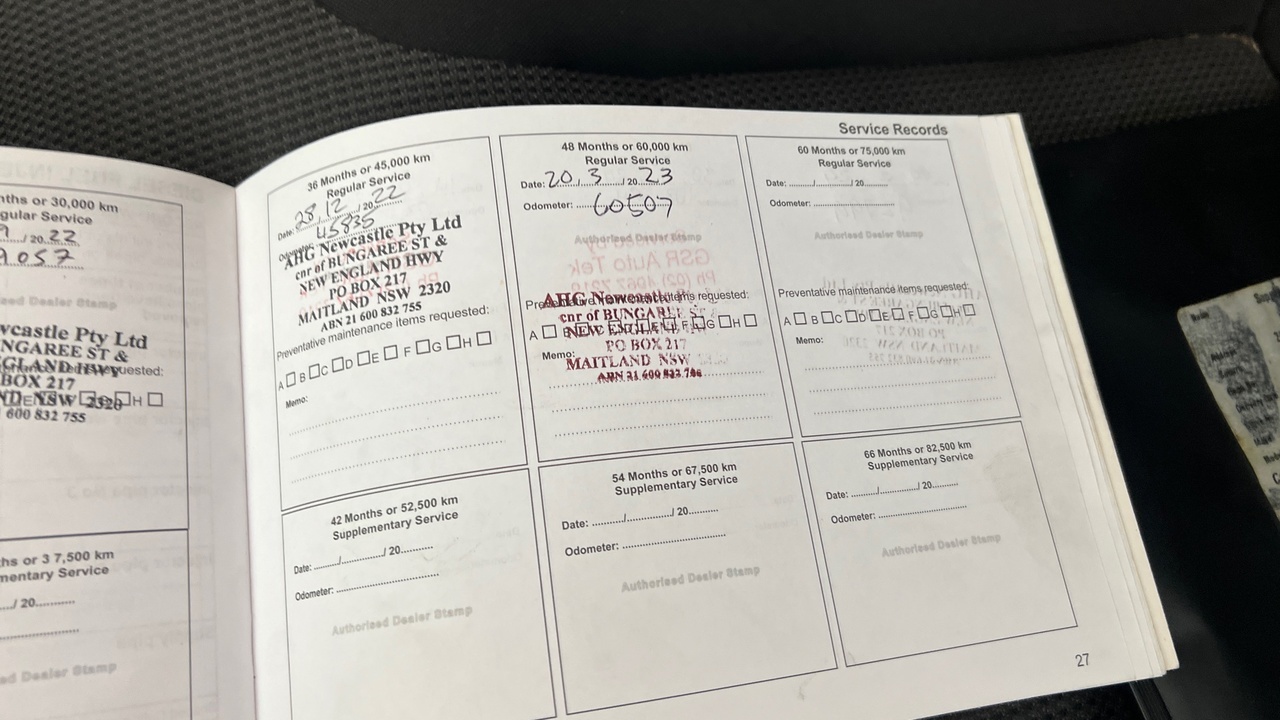 Service Records
nths or 30,000 km
gular Service
9 / 20 22
9057
ed Dealer Stamp
vcastle Pty Ltd
NGAREE ST &
GLAND HWY
BOX 217
ND NSW 2320
600 832 755
quested:
H
hs or 3 7,500 km
mentary Service
/ 20
ed Dealer Stamp
36 Months or 45,000 km
Regular Service
Date: 28/12/2022
Odometer: 45835
AHG Newcastle Pty Ltd
cnr of BUNGAREE ST &
NEW ENGLAND HWY
PO BOX 217
MAITLAND NSW 2320
ABN 21 600 832 755
Preventative maintenance items requested:
A B C D E F G H
Memo:
48 Months or 60,000 km
Regular Service
Date: 20/3/2023
Odometer: 60507
Authorised Dealer Stamp
GSR Auto Tek
Preventative maintenance items requested:
AHG Newcastle
cnr of BUNGAREE ST
A B C D E F G H
NEW ENGL
PO BOX 217
Memo:
MAITLAND NSW
ABN 21 600 832
60 Months or 75,000 km
Regular Service
Date: / / 20
Odometer:
Authorised Dealer Stamp
Preventative maintenance items requested:
A B C D E F G H
Memo:
42 Months or 52,500 km
Supplementary Service
Date: / / 20
Odometer:
Authorised Dealer Stamp
54 Months or 67,500 km
Supplementary Service
Date: / / 20
Odometer:
Authorised Dealer Stamp
66 Months or 82,500 km
Supplementary Service
Date: / / 20
Odometer:
Authorised Dealer Stamp
27